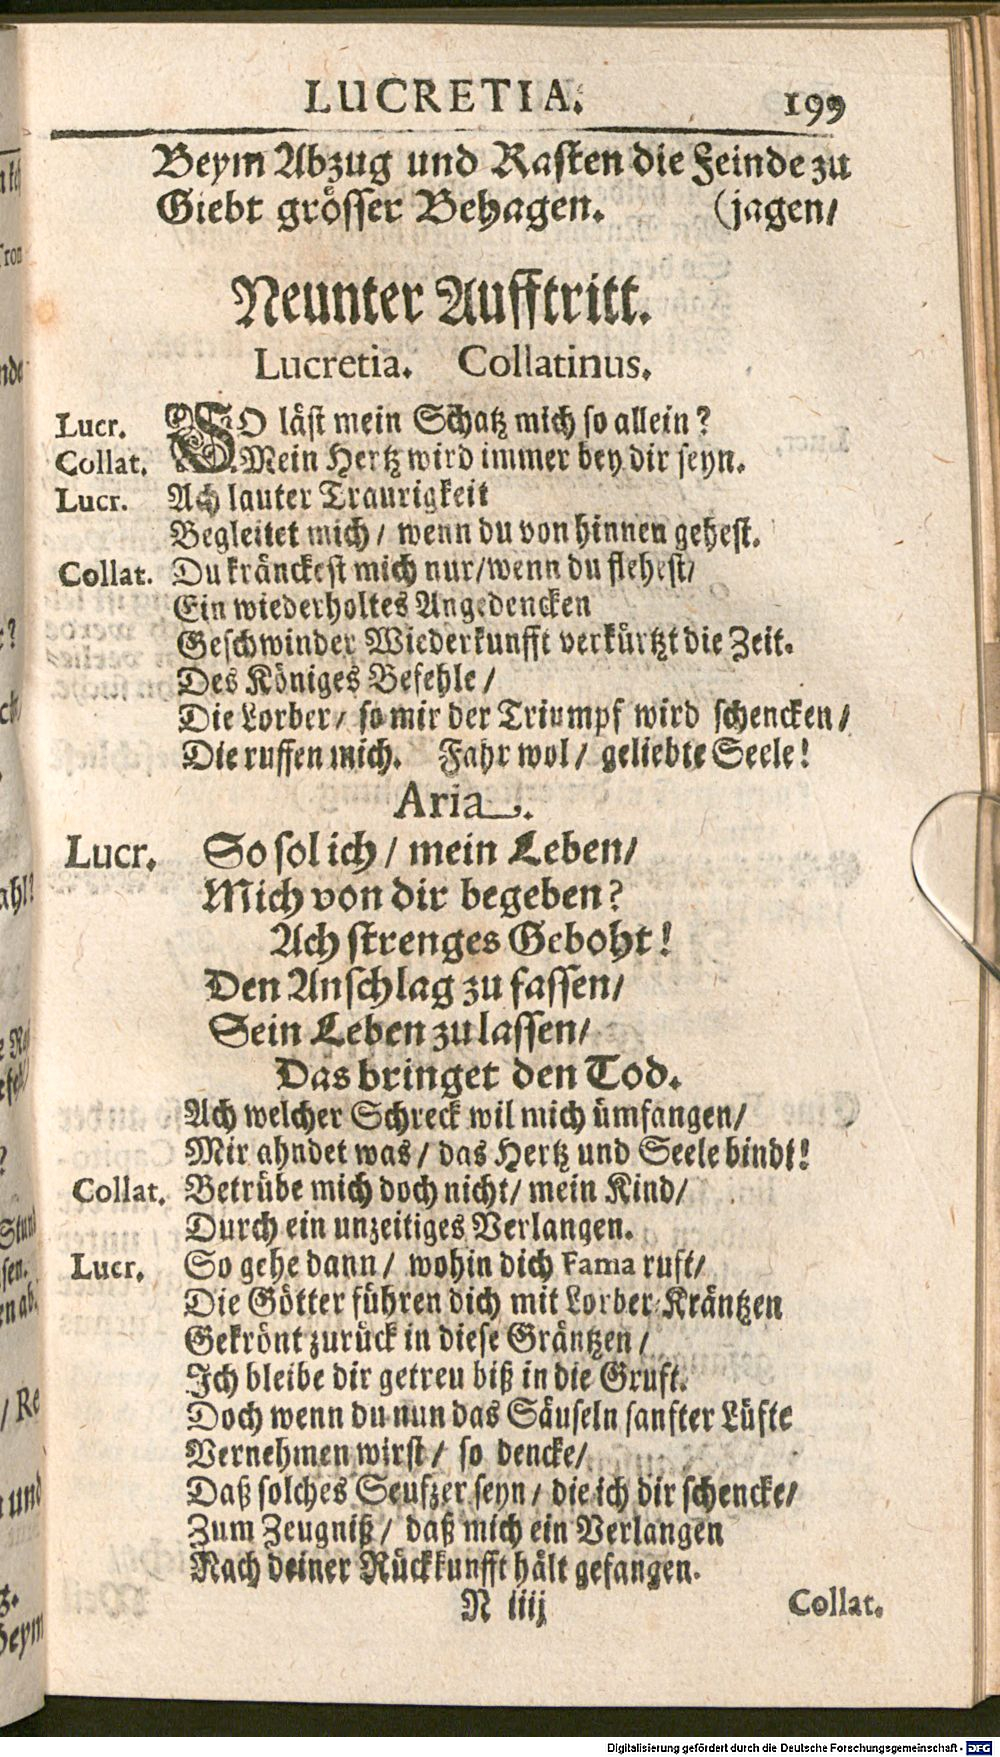 LUCRETIA. 199
Beym Abzug und Rasten die Feinde zu
Giebt grösser Behagen. (jagen/
Neunter Aufftritt.
Lucretia. Collatinus.
Lucr. SO läst mein Schatz mich so allein?
Collat. Mein Hertz wird immer bey dir seyn.
Lucr. Ach lauter Traurigkeit
Begleitet mich/ wenn du von hinnen gehest.
Collat. Du kränckest mich nur/wenn du flehest/
Ein wiederholtes Angedencken
Geschwinder Wiederkunfft verkürtzt die Zeit.
Des Königes Befehle/
Die Lorber/ so mir der Triumpf wird schencken/
Die ruffen mich. Fahr wol/ geliebte Seele!
Aria.
Lucr. So sol ich/ mein Leben/
Mich von dir begeben?
Ach strenges Geboht!
Den Anschlag zu fassen/
Sein Leben zu lassen/
Das bringet den Tod.
Ach welcher Schreck wil mich ümfangen/
Mir ahndet was/ das Hertz und Seele bindt!
Collat. Betrübe mich doch nicht/ mein Kind/
Durch ein unzeitiges Verlangen.
Lucr. So gehe dann/ wohin dich Fama ruft/
Die Götter führen dich mit Lorber-Kräntzen
Gekrönt zurück in diese Gräntzen/
Ich bleibe dir getreu biß in die Gruft.
Doch wenn du nun das Säuseln sanfter Lüfte
Vernehmen wirst/ so dencke/
Daß solches Seufzer seyn/ die ich dir schencke/
Zum Zeugniß/ daß mich ein Verlangen
Nach deiner Rückkunfft hält gefangen.
N iiij Collat.
Digitalisierung gefördert durch die Deutsche Forschungsgemeinschaft - DFG